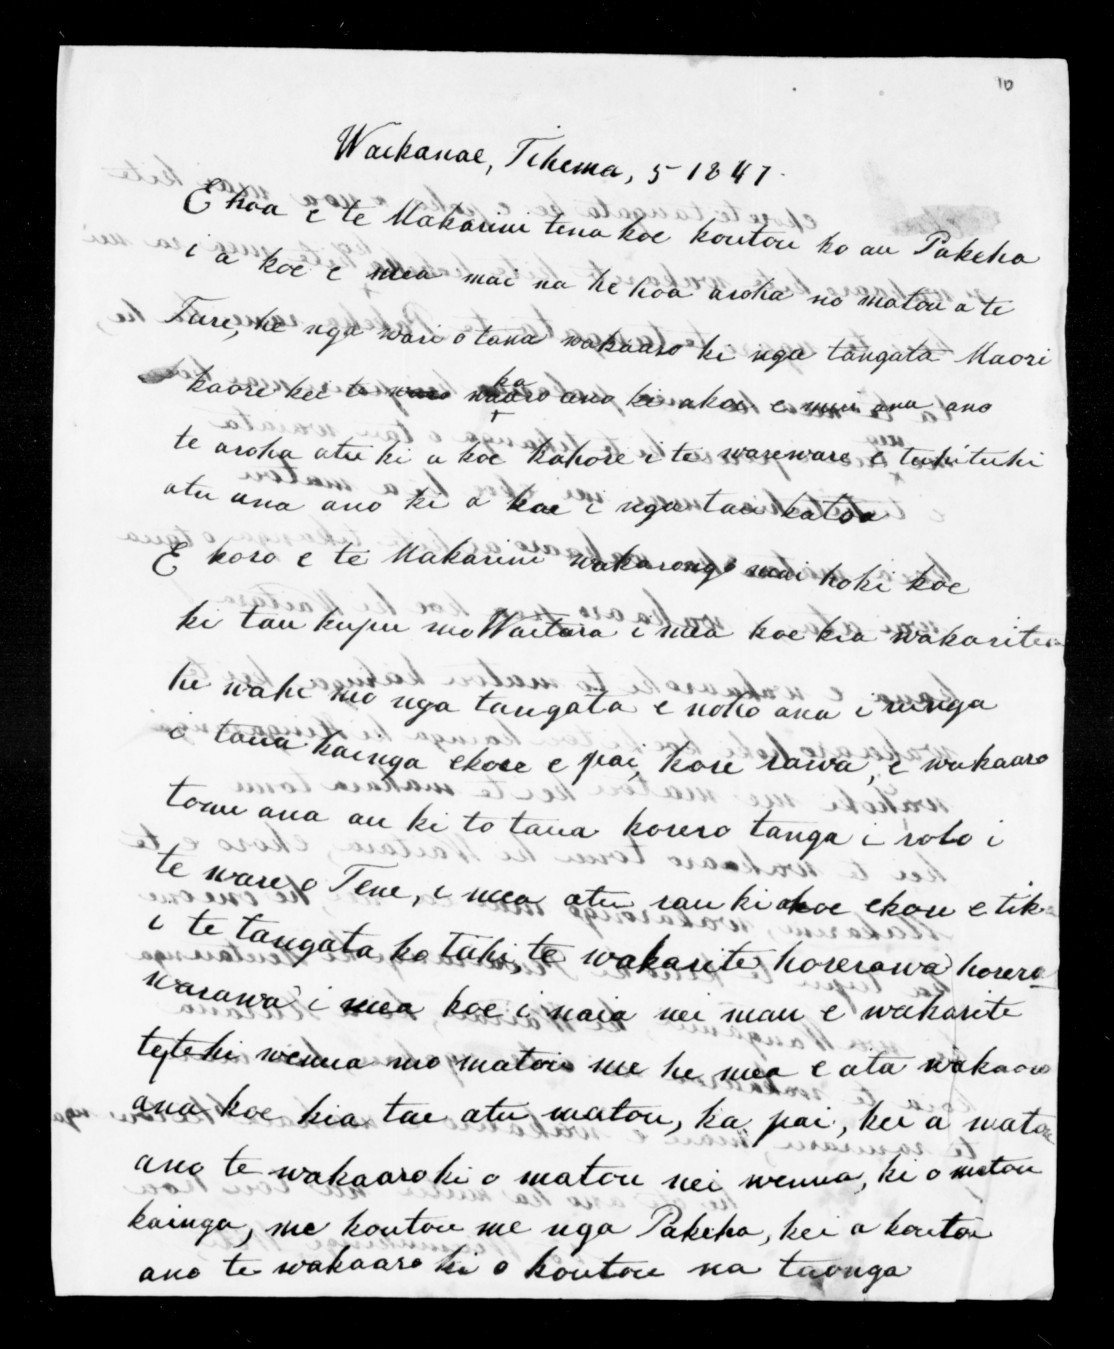 10
Waikanae, Tihema, 5 1847.
E hoa e te Makarini tena koe koutou ko au Pakeha
i a koe e mea mai na he hoa aroha no matou a te
Ture, he nga wari o tana wakaaro ki nga tangata Maori
kaore kei te waro wakaaro ano ki akoe e mui ana ano
te aroha atu ki a koe kahore i te wareware e tuhituhi
atu ana ano ki a koe i nga tau katoa
E koro e te Makarini wakarongo mai hoki koe
ki tau kupu mo Waitara i mea koe kia wakaritea
he wahi mo nga tangata e noho ana i runga
i taua kainga ekore e pai, kore rawa, e wakaaro
tonu ana au ki to taua korero tanga i roto i
te ware o Tene, i mea atu rau ki akoe ekore e tika
i te tangata ko tahi te wakarite horerawa horera
warawa i mea koe i naia nei mau e wakarite
tetehi wenua mo matou me he mea e ata wakaaro
ana koe kia tae atu matou, ka pai, kei a matou
ano te wakaaro ki o matou nei wenua, ki o matou
kainga, me koutou me nga Pakeha, kei a koutou
ano te wakaaro ki o koutou na taonga